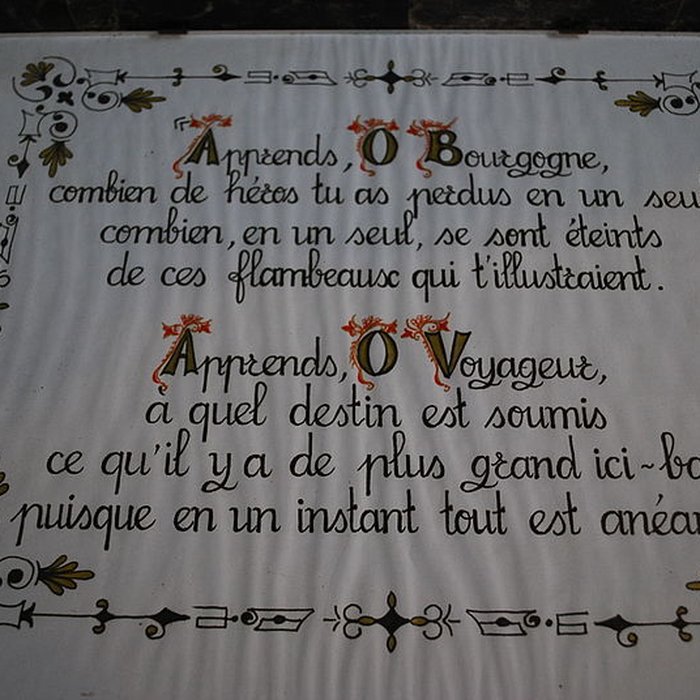 "Apprends, O Bourgogne,
combien de héros tu as perdus en un seu
combien, en un seul, se sont éteints
de ces flambeaux qui t'illustraient.
Apprends, O Voyageur,
à quel destin est soumis
ce qu'il y a de plus grand ici-ba
puisque en un instant tout est anéan